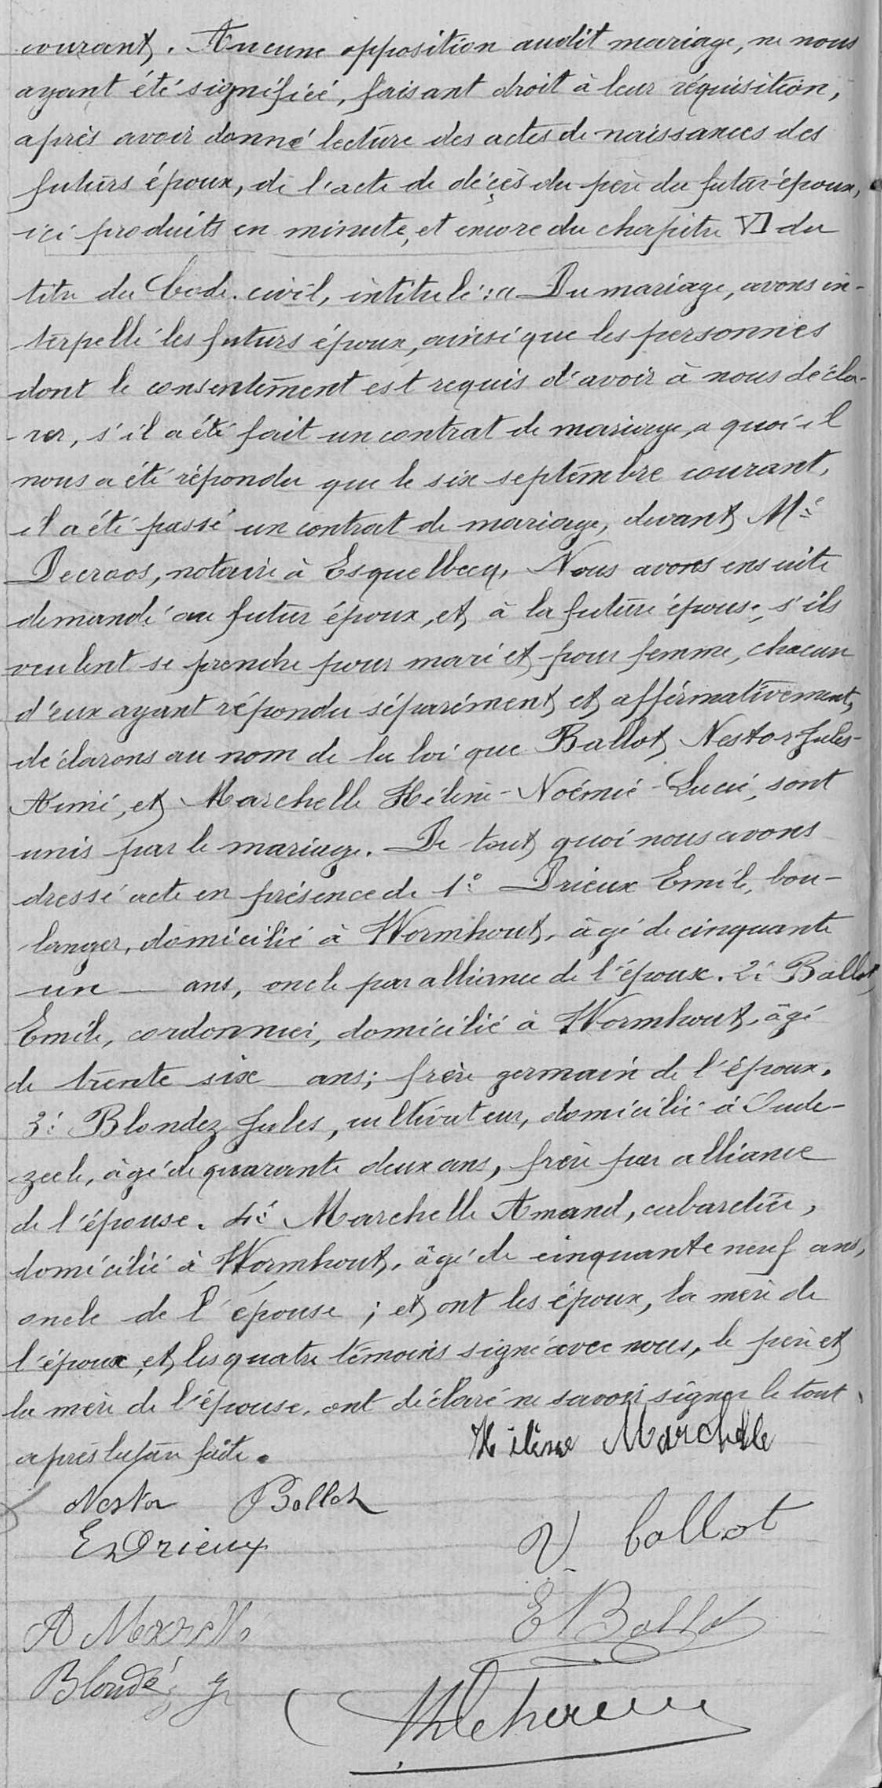 courant. Aucune opposition audit mariage, ne nous
ayant été signifiée, faisant droit à leur réquisition,
après avoir donné lecture des actes de naissances des
futurs époux, de l'acte de décès du père du futur époux,
ici produits en minute, et encore du chapitre VI du
titre du Code civil, intitulé : « Du mariage, avons in-
terpellé les futurs époux, ainsi que les personnes
dont le consentement est requis d'avoir à nous décla-
-rer, s'il a été fait un contrat de mariage, a quoi il
nous a été répondu que le six septembre courant,
il a été passé un contrat de mariage, devant Me
Decroos, notaire à Esquelbecq. Nous avons ensuite
demandé au futur époux, et à la future épouse, s'ils
veulent se prendre pour mari et pour femme, chacun
d'eux ayant répondu séparément et affirmativement,
déclarons au nom de la loi que Ballot Nestor-Jules-
Aimé, et Marchelle Hélène-Noémie-Lucie, sont
unis par le mariage. De tout quoi nous avons
dressé acte en présence de 1° Drieux Emile, bou-
langer, domicilié à Wormhout, âgé de cinquante
un — ans, oncle par alliance de l'époux. 2° Ballot
Emile, cordonnier, domicilié à Wormhout, âgé
de trente six ans; frère germain de l'époux.
3° Blondez Jules, cultivateur, domicilié à Oude-
zeele, âgé de quarante deux ans, frère par alliance
de l'épouse. 4° Marchelle Amand, cabaretier,
domicilié à Wormhout, âgé de cinquante neuf ans,
oncle de l'épouse ; et ont les époux, la mère de
l'époux et les quatre témoins signé avec nous, le père et
la mère de l'épouse, ont déclaré ne savoir signer le tout
après lecture faite.
Hélène Marchelle
Nestor Ballot
E Drieux
V. ballot
E Ballot
A Marchelle
Blondé J